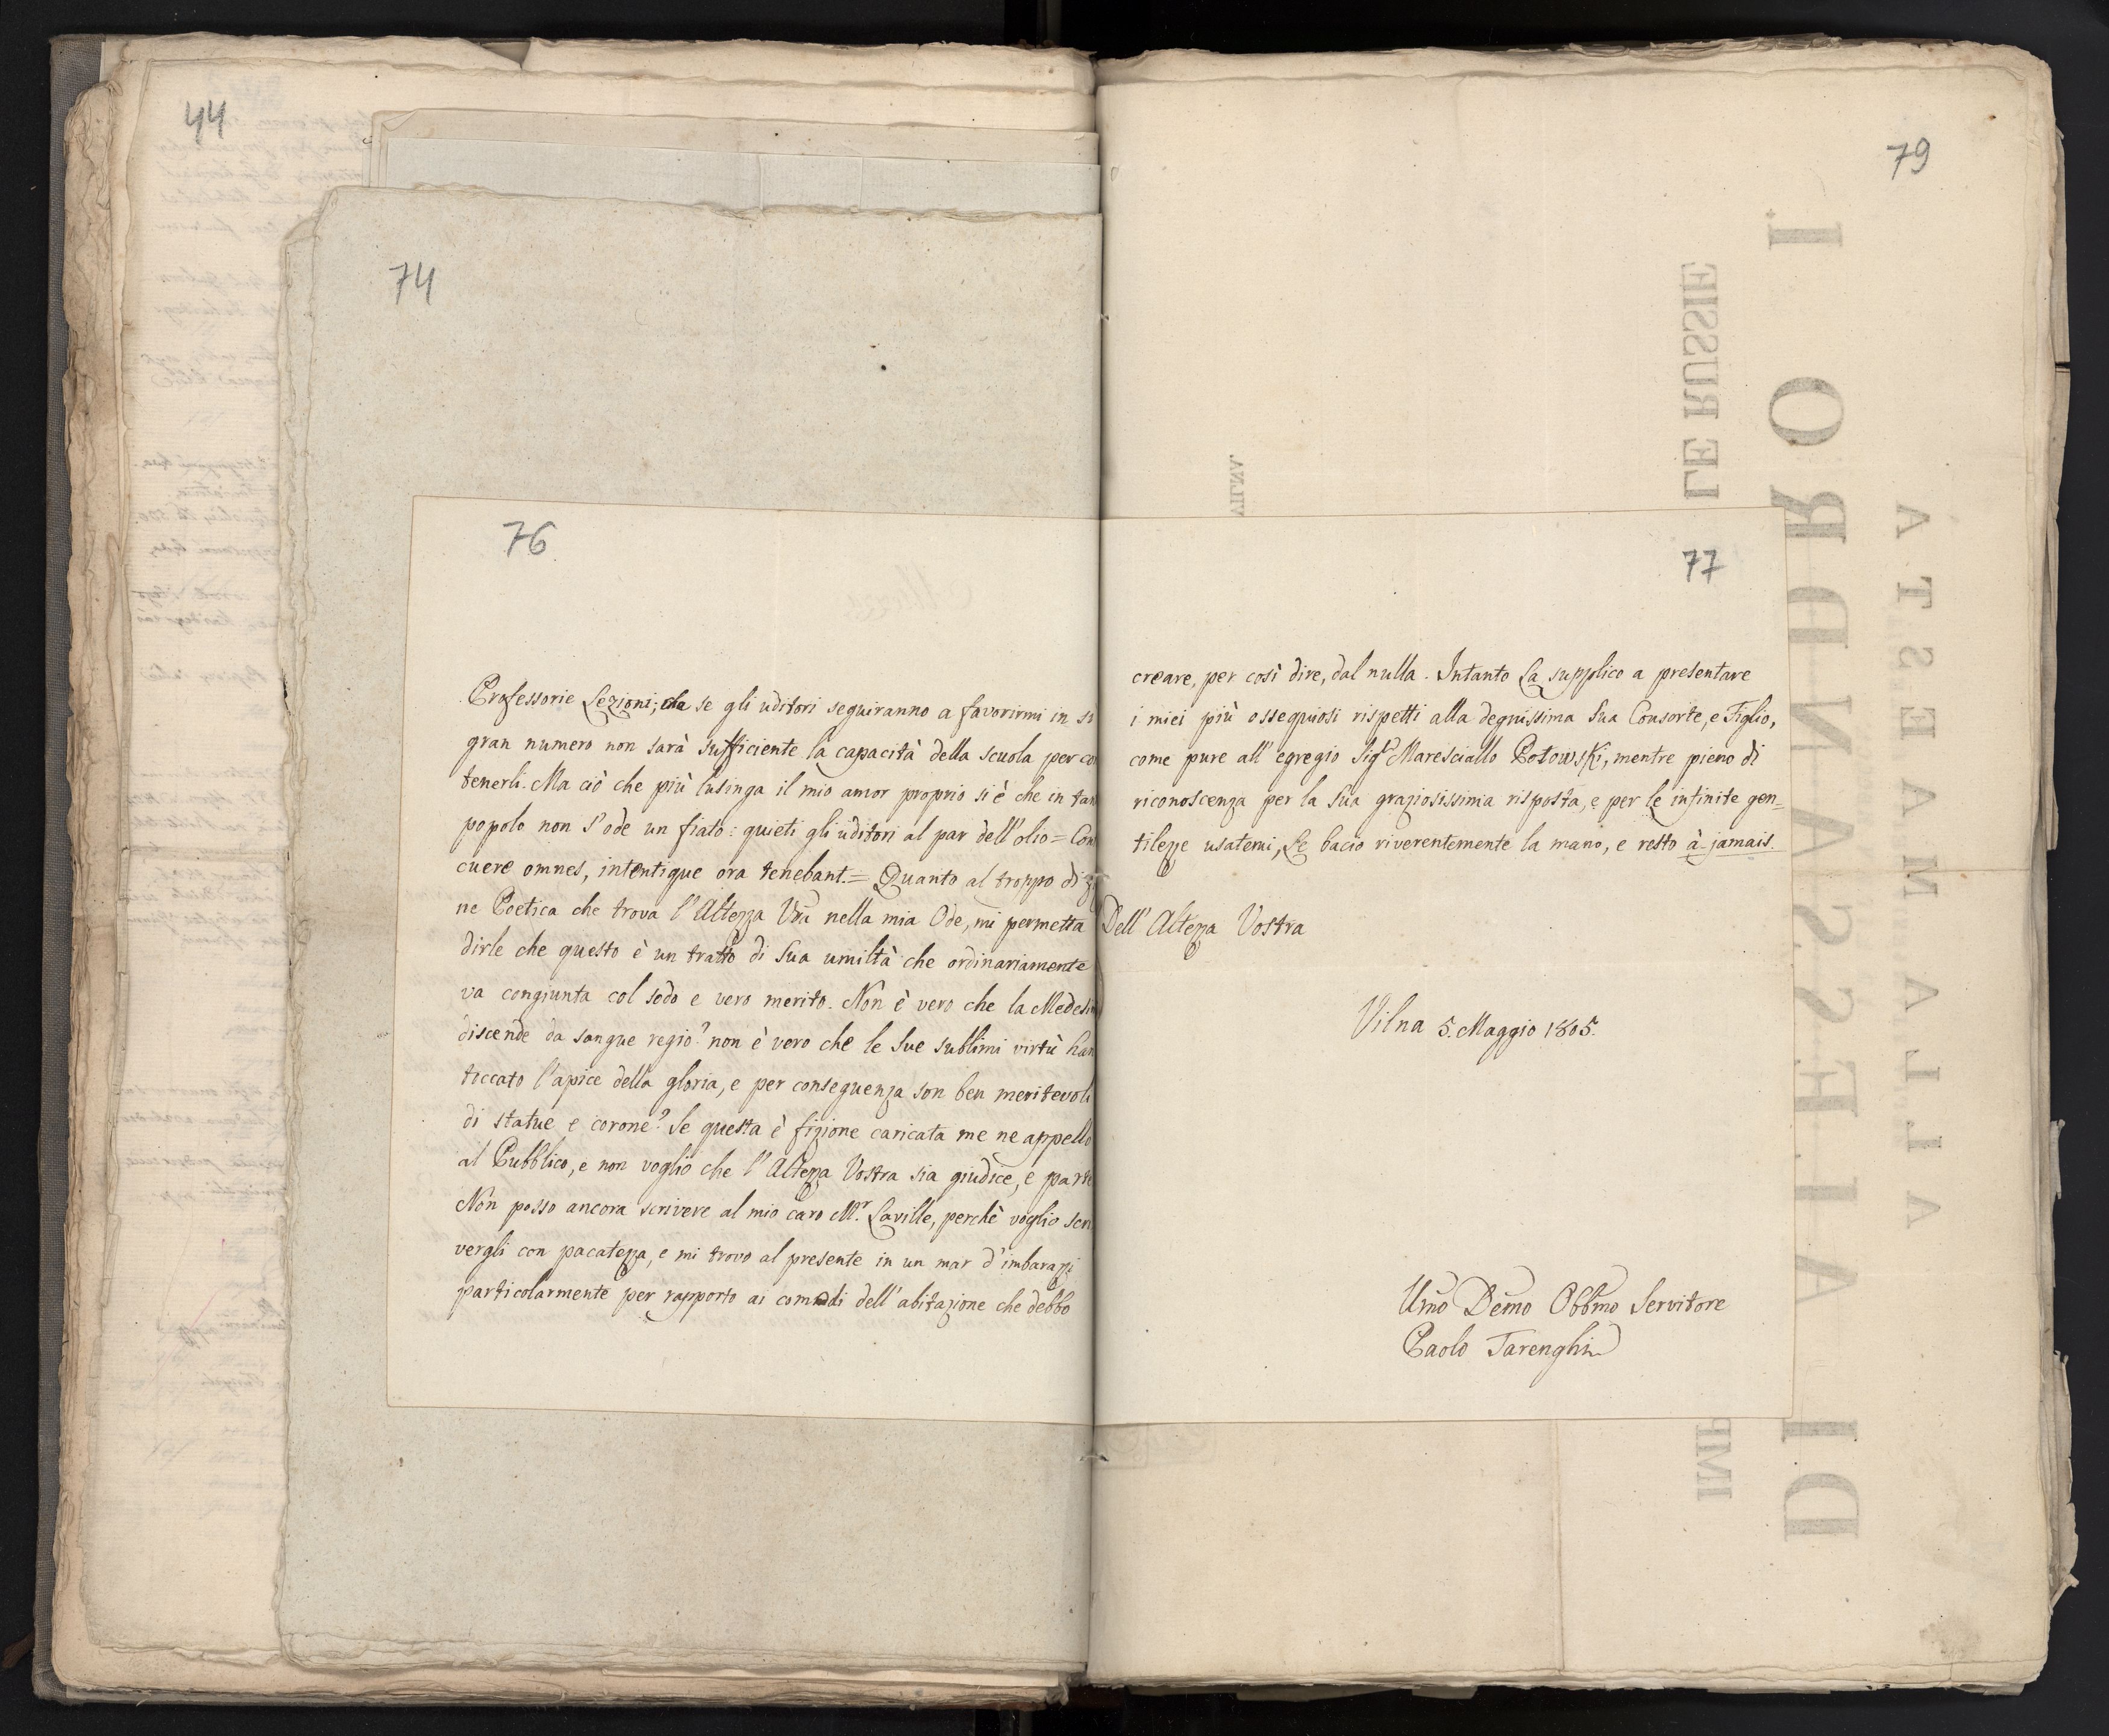 44
74
76
Professorie Lezioni; che se gli uditori seguiranno a favorirmi in sì
gran numero non sarà sufficiente la capacità della scuola per con
tenerli. Ma ciò che più lusinga il mio amor proprio si è che in tan
popolo non s'ode un fiato: quieti gli uditori al par dell'olio = Con
cuere omnes, intentique ora tenebant. = Quanto al troppo di
ne Poetica che trova l'Altezza Vra nella mia Ode, mi permetta
dirle che questo è un tratto di Sua umiltà che ordinariamente
va congiunta col sodo e vero merito. Non è vero che la Medesi
discende da sangue regio? non è vero che le Sue sublimi virtù han
toccato l'apice della gloria, e per conseguenza son ben meritevoli
di statue e corone? Se questa è fizione caricata me ne appello
al Pubblico, e non voglio che l'Altezza Vostra sia giudice, e parte
Non posso ancora scrivere al mio caro Mr. Laville, perchè voglio scri
vergli con pacatezza, e mi trovo al presente in un mar d'imbarazzi
particolarmente per rapporto ai comodi dell'abitazione che debbo
79
77
creare, per così dire, dal nulla. Intanto La supplico a presentare
i miei più ossequiosi rispetti alla degnissima Sua Consorte, e Figlio,
come pure all'egregio Sigr Maresciallo Potowski, mentre pieno di
riconoscenza per la Sua graziosissima risposta, e per le infinite gen=
tilezze usatemi, Le bacio riverentemente la mano, e resto à-jamais.
Dell'Altezza Vostra
Vilna 5. Maggio 1805.
Umo Demo Obbmo Servitore
Paolo Tarenghi
ALLA MAESTA
DI ALESSANDRO I.
IMP
LE RUSSIE
VILNA.